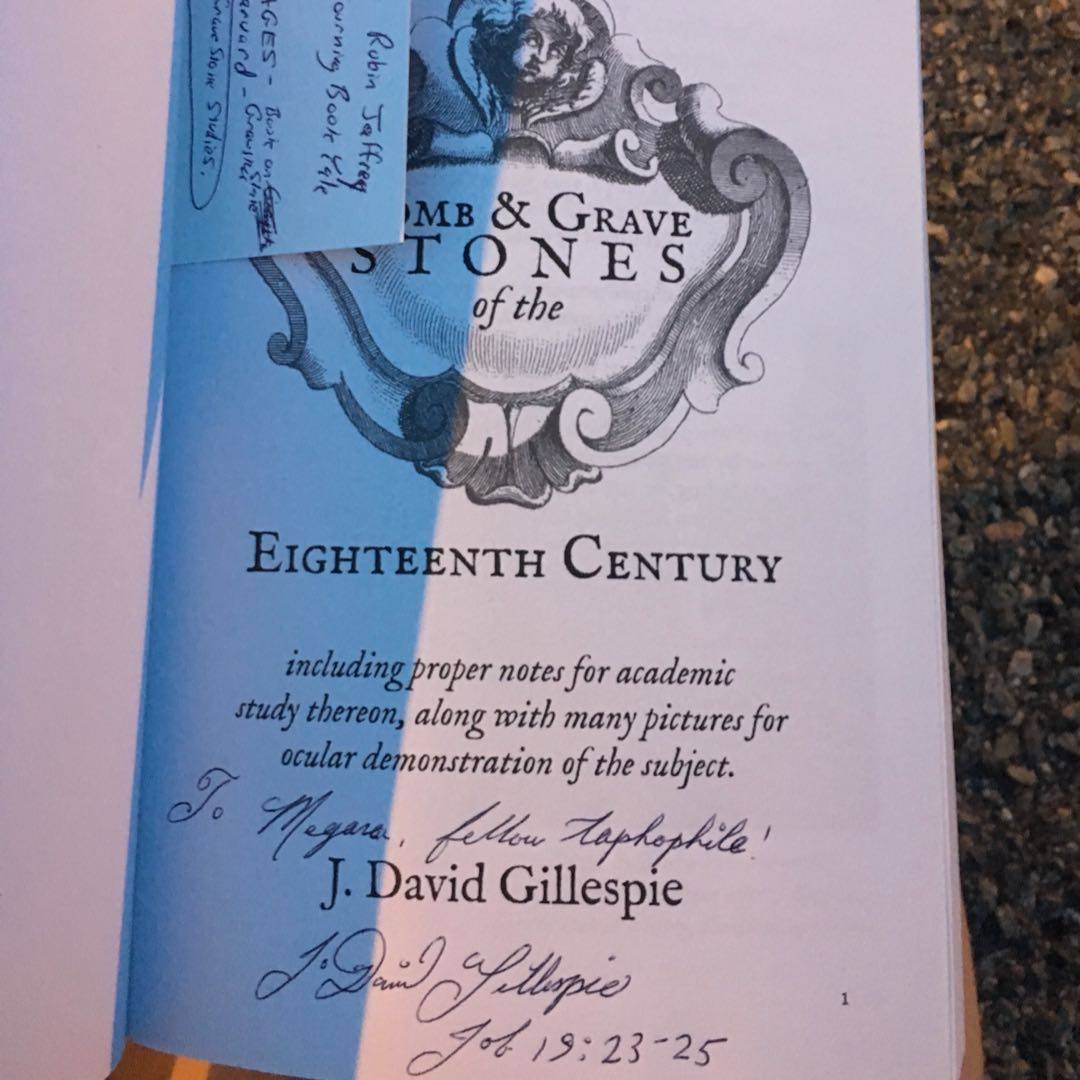 Robin Jaffrey
ourning Book Yale
AGES - Book on
arvard - Gravestone
rave Stone Studies.
OMB & GRAVE
STONES
of the
EIGHTEENTH CENTURY
including proper notes for academic
study thereon, along with many pictures for
ocular demonstration of the subject.
To Megara, fellow taphophile!
J. David Gillespie
J. David Gillespie
Job 19:23-25
1